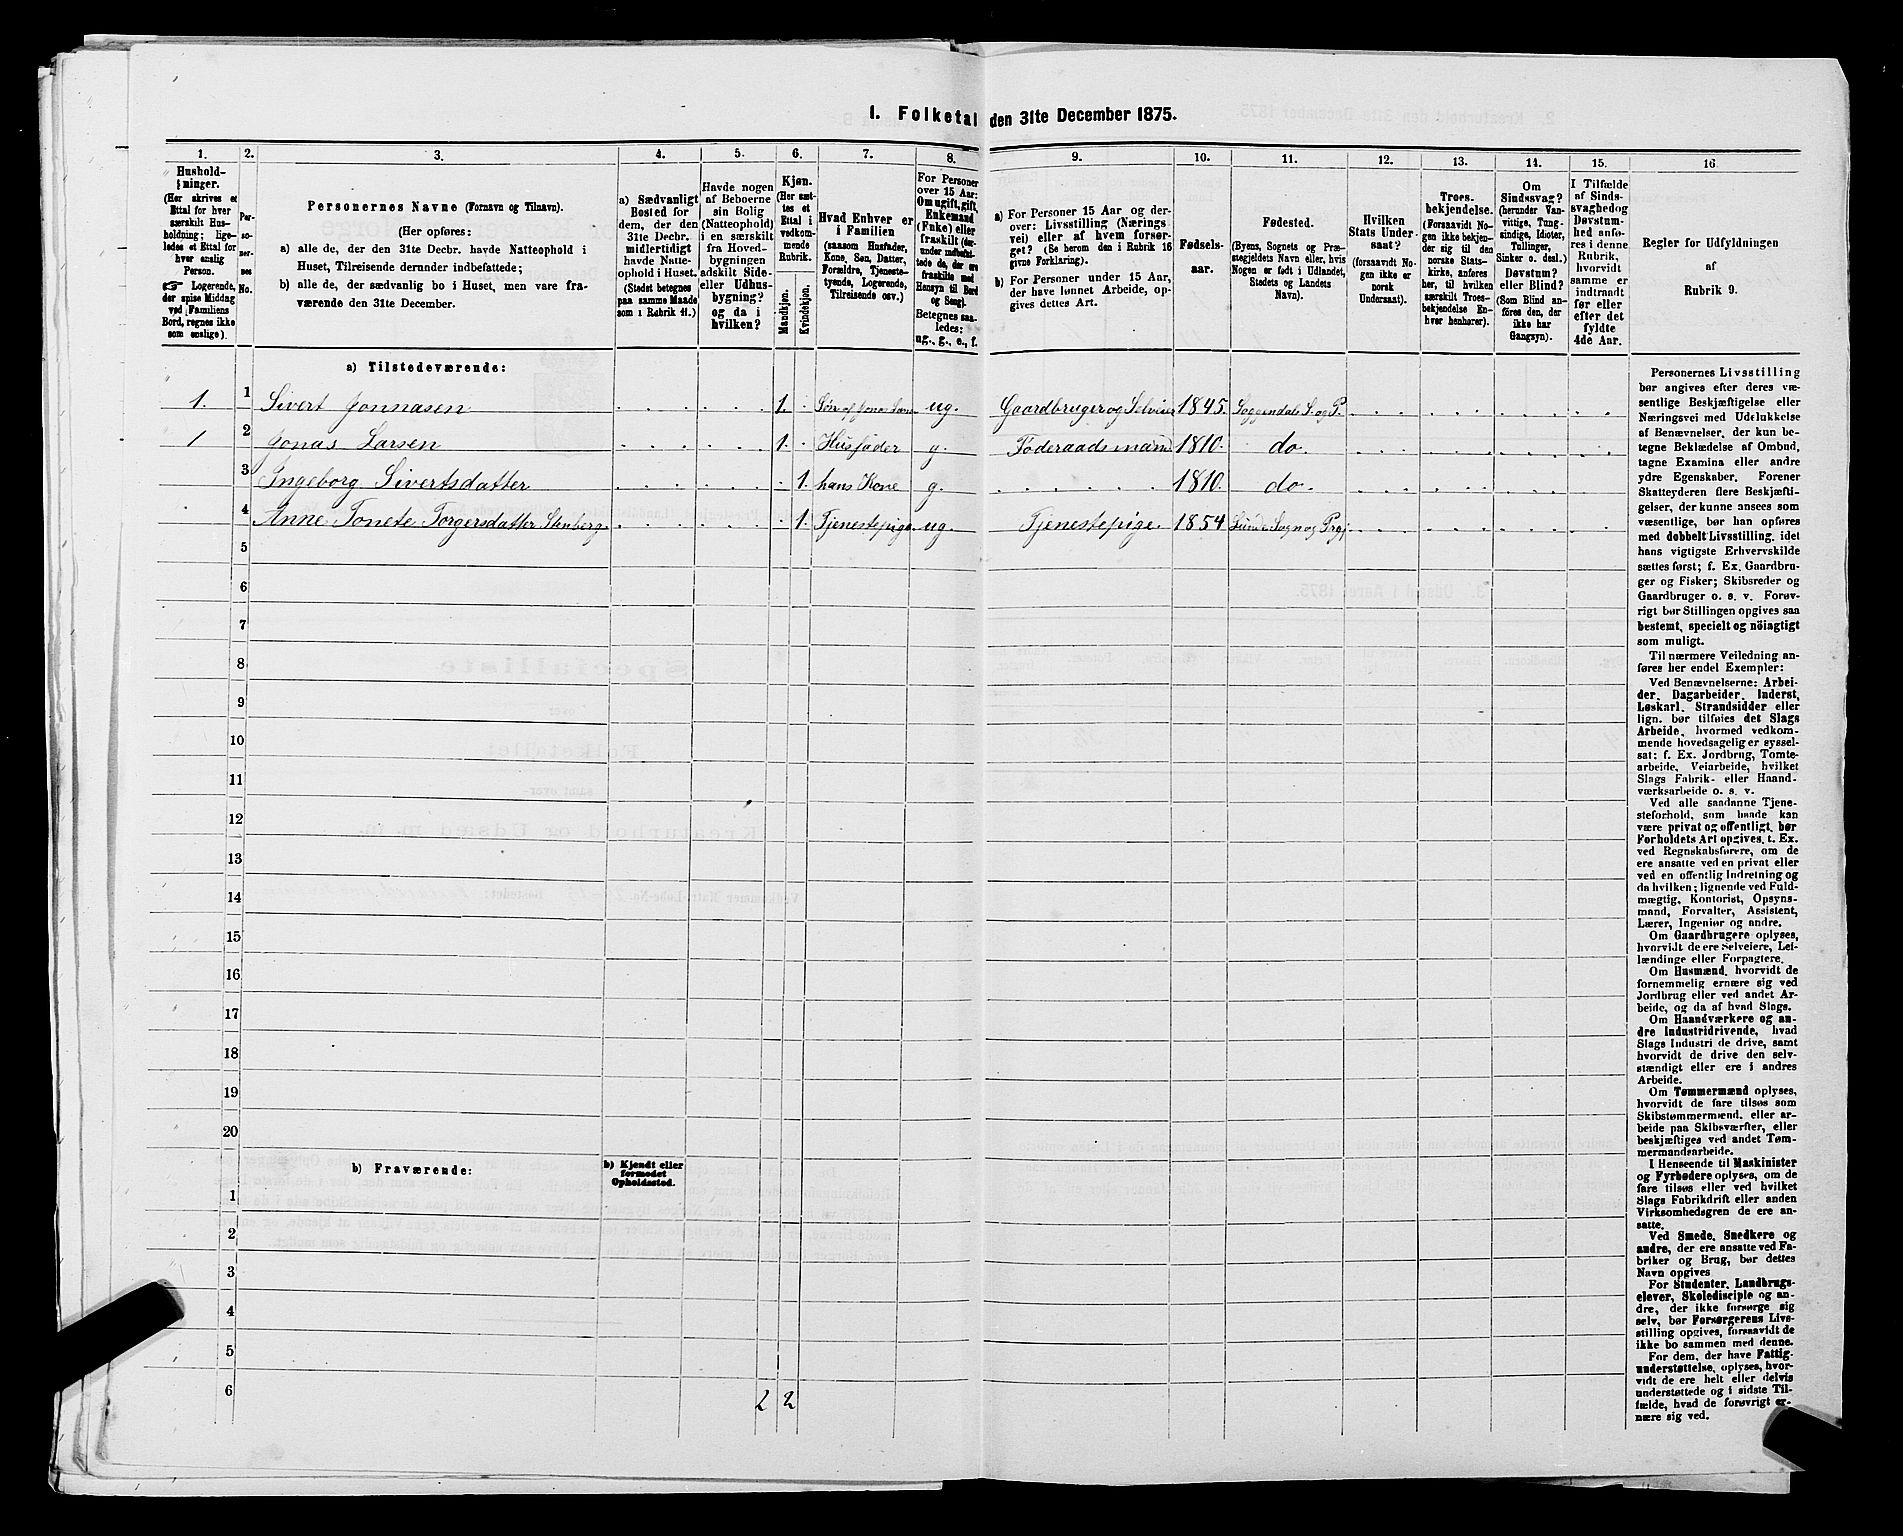 1. Folketal den 31te December 1875.
1. 2. 3. 4. 5. 6. 7. 8. 9. 10. 11. 12. 13. 14. 15. 16
Personernes Navne (Fornavn og Tilnavn).
(Her opføres:
a) alle de, der den 31te Decbr. havde Natteophold i
Huset, Tilreisende derunder indbefattede;
b) alle de, der sædvanlig bo i Huset, men vare fra-
værende den 31te December.
a) Sædvanligt
Bosted for
dem, der den
31te Decbr.
midlertidigt
havde Natte-
ophold i Huset.
(Stedet betegnes
paa samme Maade
som i Rubrik 11.)
Havde nogen
af Beboerne
sin Bolig
(Natteophold)
i en særskilt
fra Hoved-
bygningen
adskilt Side-
eller Udhus-
bygning?
og da i
hvilken?
Kjøn.
(Her sæt-
tes et
Ettal i
vedkom-
mende
Rubrik.
Mandkjøn.
Kvindekjøn.
Hvad Enhver er
i Familien
(saasom Husfader,
Kone, Søn, Datter,
Forældre, Tjeneste-
tyende, Logerende,
Tilreisende osv.)
a) For Personer 15 Aar og der-
over: Livsstilling (Nærings-
vei) eller af hvem forsør-
get? (Se herom den i Rubrik 16
givne Forklaring).
b) For Personer under 15 Aar,
der have lønnet Arbeide, op-
gives dettes Art.
Fødsels-
aar.
Fødested.
(Byens, Sognets og Præ-
stegjeldets Navn eller, hvis
Nogen er født i Udlandet,
Stedets og Landets
Navn).
Hvilken
Stats Under-
saat?
(forsaavidt No-
gen ikke er
norsk
Undersaat).
Troes-
bekjendelse.
(Forsaavidt No-
gen ikke bekjen-
der sig til den
norske Stats-
kirke, anføres
her, til hvilken
særskilt Troes-
bekjendelse En-
hver henhører).
Om
Sindssvag?
(herunder Van-
vittige, Tung-
sindige, Idioter,
Tullinger,
Sinker o. desl.)
Døvstum?
eller Blind?
(Som Blind an-
føres den, der
ikke har
Gangsyn).
I Tilfælde
af Sinds-
svaghed og
Døvstum-
hed anfø-
res i denne
Rubrik,
hvorvidt
samme er
indtraadt
før eller
efter det
fyldte
4de Aar.
Regler for Udfyldningen
af
Rubrik 9.
a) Tilstedeværende:
1. 1 Sivert Jonnasen 1. Søn af Jonas Larsen ug. Gaardbruger og Selveier 1845. Soggendals S. og P.
1 2 Jonas Larsen 1. Husfader g. Føderaadsmand 1810. do
3 Ingeborg Sivertsdatter 1. hans Kone g. 1810. do.
4 Anne Tonete Torgersdatter Stenberg 1. Tjenestepige ug. Tjenestepige 1854 Lunde Sogn og Prgj.
5
6
7
8
9
10
11
12
13
14
15
16
17
18
19
20
b) Fraværende:
b) Kjendt eller
formodet
Opholdssted.
1
2
3
4
5
6
2 2
Personernes Livsstilling
bør angives efter deres væ-
sentlige Beskjæftigelse eller
Næringsvei med Udelukkelse
af Benævnelser, der kun be-
tegne Beklædelse af Ombud,
tagne Examina eller andre
ydre Egenskaber. Forener
Skatteyderen flere Beskjæfti-
gelser, der kunne ansees som
væsentlige, bør han opføres
med dobbelt Livsstilling, idet
hans vigtigste Erhvervskilde
sættes først; f. Ex. Gaardbru-
ger og Fisker; Skibsreder og
Gaardbruger o. s. v. Forøv-
rigt bør Stillingen opgives saa
bestemt, specielt og nøiagtigt
som muligt.
Til nærmere Veiledning an-
føres her endel Exempler:
Ved Benævnelserne: Arbei-
der, Dagarbeider, Inderst,
Løskarl, Strandsidder eller
lign. bør tilføies det Slags
Arbeide, hvormed vedkom-
mende hovedsagelig er syssel-
sat; f. Ex. Jordbrug, Tomte-
arbeide, Veiarbeide, hvilket
Slags Fabrik- eller Haand-
værksarbeide o. s. v.
Ved alle saadanne Tjene-
steforhold, som baade kan
være privat og offentligt, bør
Forholdets Art opgives, t. Ex.
ved Regnskabsførere, om de
ere ansatte ved en privat eller
ved en offentlig Indretning og
da hvilken; lignende ved Fuld-
mægtig, Kontorist, Opsyns-
mand, Forvalter, Assistent,
Lærer, Ingeniør og andre.
Om Gaardbrugere oplyses,
hvorvidt de ere Selveiere, Lei-
lændinge eller Forpagtere.
Om Husmænd, hvorvidt de
fornemmelig ernære sig ved
Jordbrug eller ved andet Ar-
beide, og da af hvad Slags.
Om Haandværkere og an-
dre Industridrivende, hvad
Slags Industri de drive, samt
hvorvidt de drive den selv-
stændigt eller ere i andres
Arbeide.
Om Tømmermænd oplyses,
hvorvidt de fare tilsøs som
Skibstømmermænd, eller ar-
beide paa Skibsværfter, eller
beskjæftiges ved andet Tøm-
mermandsarbeide.
I Henseende til Maskinister
og Fyrbødere oplyses, om de
fare tilsøs eller ved hvilket
Slags Fabrikdrift eller anden
Virksomhedsgren de ere an-
satte.
Ved Smede, Snedkere og
andre, der ere ansatte ved Fa-
briker og Brug, bør dettes
Navn opgives
For Studenter, Landbrugs-
elever, Skoledisciple og an-
dre, der ikke forsørge sig
selv, bør Forsørgerens Livs-
stilling opgives, forsaavidt de
ikke bo sammen med denne.
For dem, der have Fattig-
understøttelse, oplyses, hvor-
vidt de ere helt eller delvis
understøttede og i sidste Til-
fælde, hvad de forøvrigt er-
nære sig ved.